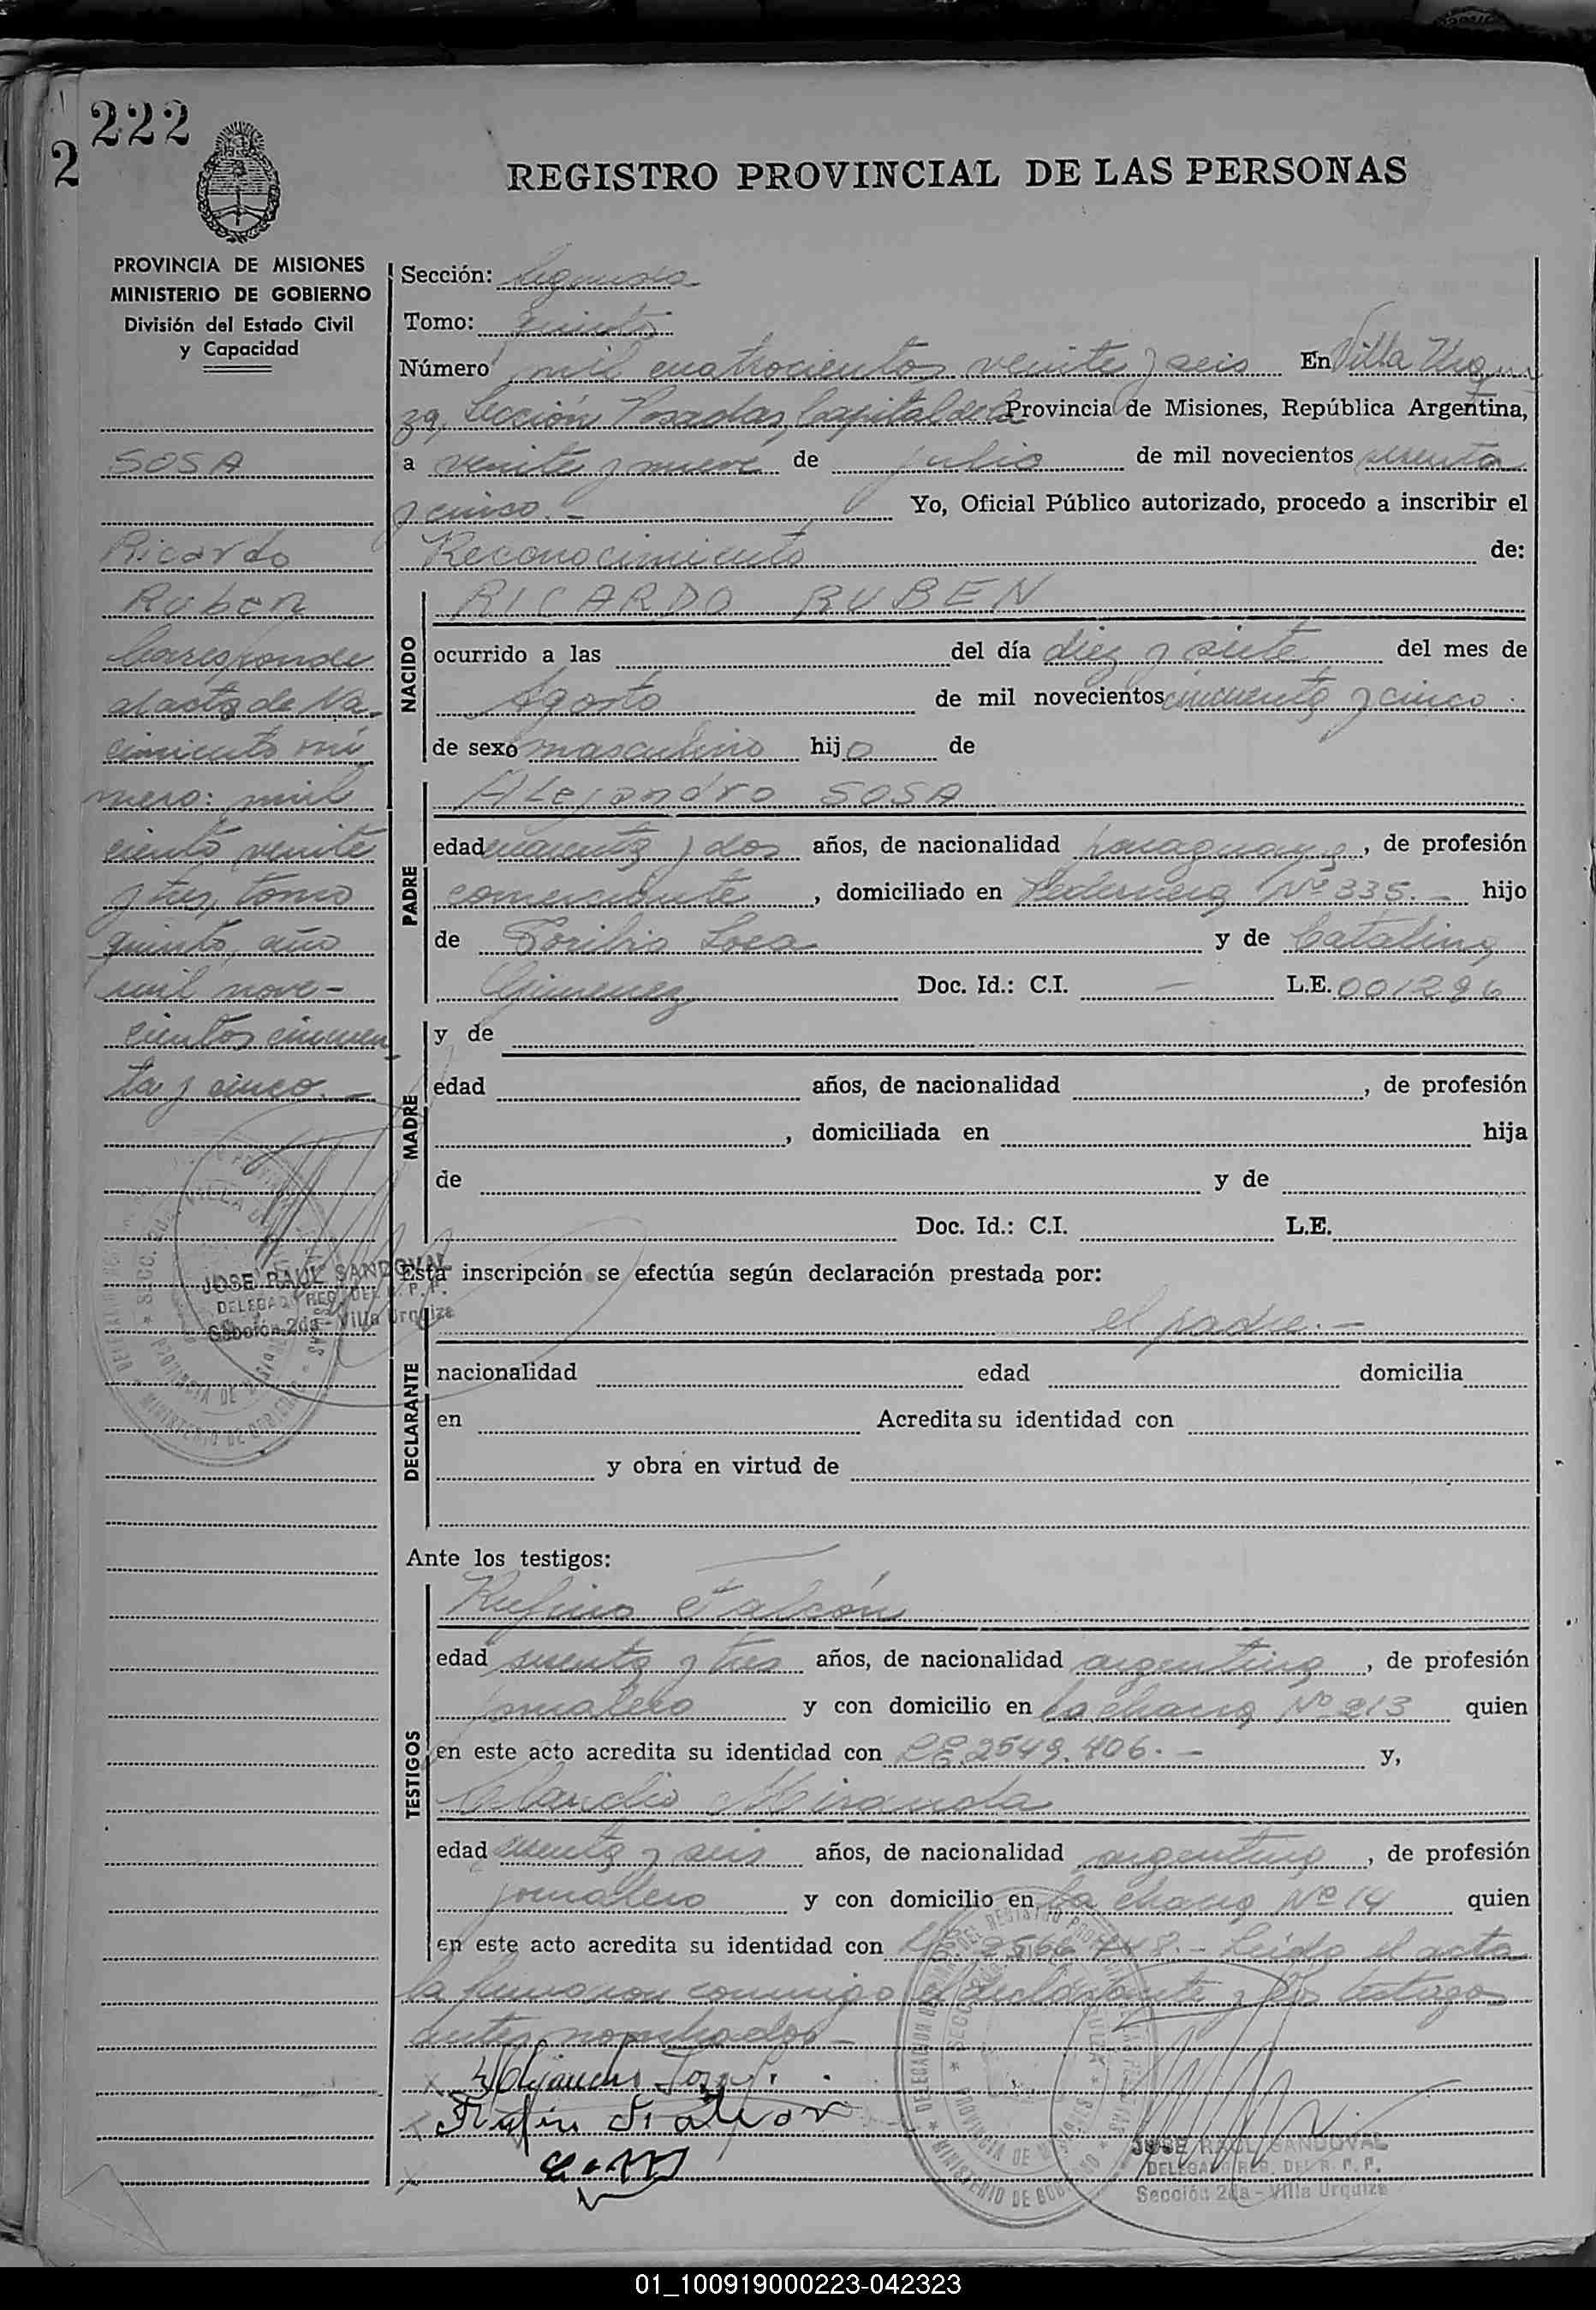 222
2
REGISTRO PROVINCIAL DE LAS PERSONAS
PROVINCIA DE MISIONES
MINISTERIO DE GOBIERNO
División del Estado Civil
y Capacidad
SOSA
Ricardo
Ruben
Corresponde
al acta de Na-
cimiento nú
mero: mil
ciento veinte
y tres, tomo
quinto, año
mil nove-
cientos cincuen
ta y cinco.-
JOSE RAUL SANDOVAL
DELEGADO REG. DEL R. P. P.
Sección 2da - Villa Urquiza
Sección: Segunda
Tomo: quinto
Número mil cuatrocientos veinte y seis En Villa Urqui
za, Sección Posadas, Capital de la Provincia de Misiones, República Argentina,
a veinte y nueve de julio de mil novecientos sesenta
y cinco.- Yo, Oficial Público autorizado, procedo a inscribir el
Reconocimiento de:
NACIDO
RICARDO RUBEN
ocurrido a las del día diez y siete del mes de
Agosto de mil novecientos cincuenta y cinco
de sexo masculino hijo de
PADRE
Alejandro SOSA
edad cuarenta y dos años, de nacionalidad paraguaya, de profesión
comerciante, domiciliado en Pedernera Nº 335.- hijo
de Toribio Sosa y de Catalina
Gimenez Doc. Id.: C.I. - L.E. 001296
MADRE
y de
edad años, de nacionalidad , de profesión
, domiciliada en hija
de y de
Doc. Id.: C.I. L.E.
Esta inscripción se efectúa según declaración prestada por:
el padre.-
DECLARANTE
nacionalidad edad domicilia
en Acredita su identidad con
y obra en virtud de
Ante los testigos:
TESTIGOS
Rufino Falcón
edad sesenta y tres años, de nacionalidad argentina, de profesión
jornalero y con domicilio en la chacra Nº 213 quien
en este acto acredita su identidad con LE.2549.406.- y,
Claudio Miranda
edad sesenta y seis años, de nacionalidad argentina, de profesión
jornalero y con domicilio en la chacra Nº 14 quien
en este acto acredita su identidad con Leida el acta
la firmaron conmigo el declarante y los testigos
antes nombrados-
Alejandro Sosa
Rufino Falcon
C.M
JOSE RAUL SANDOVAL
DELEGADO REG. DEL R. P. P.
Sección 2da - Villa Urquiza
01_100919000223-042323